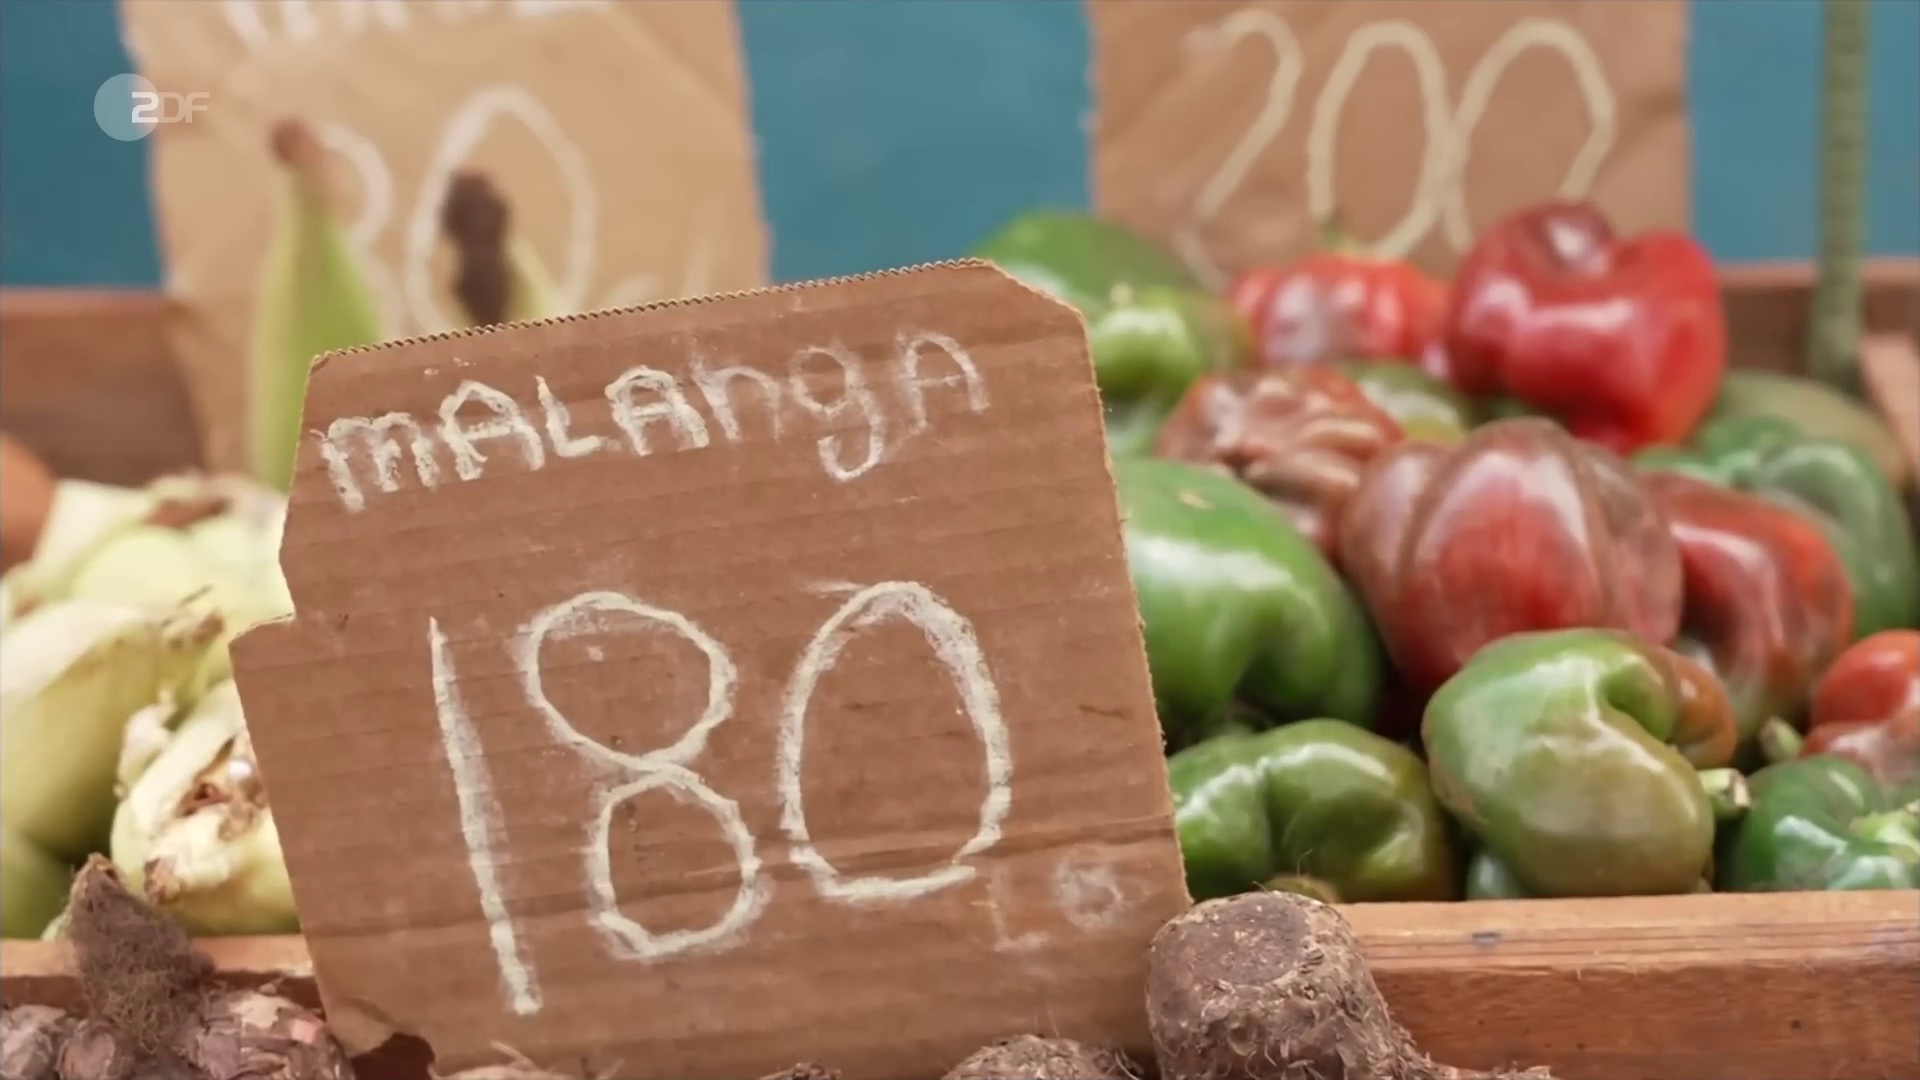 ZDF
30
200
mALAngA
180
Lb